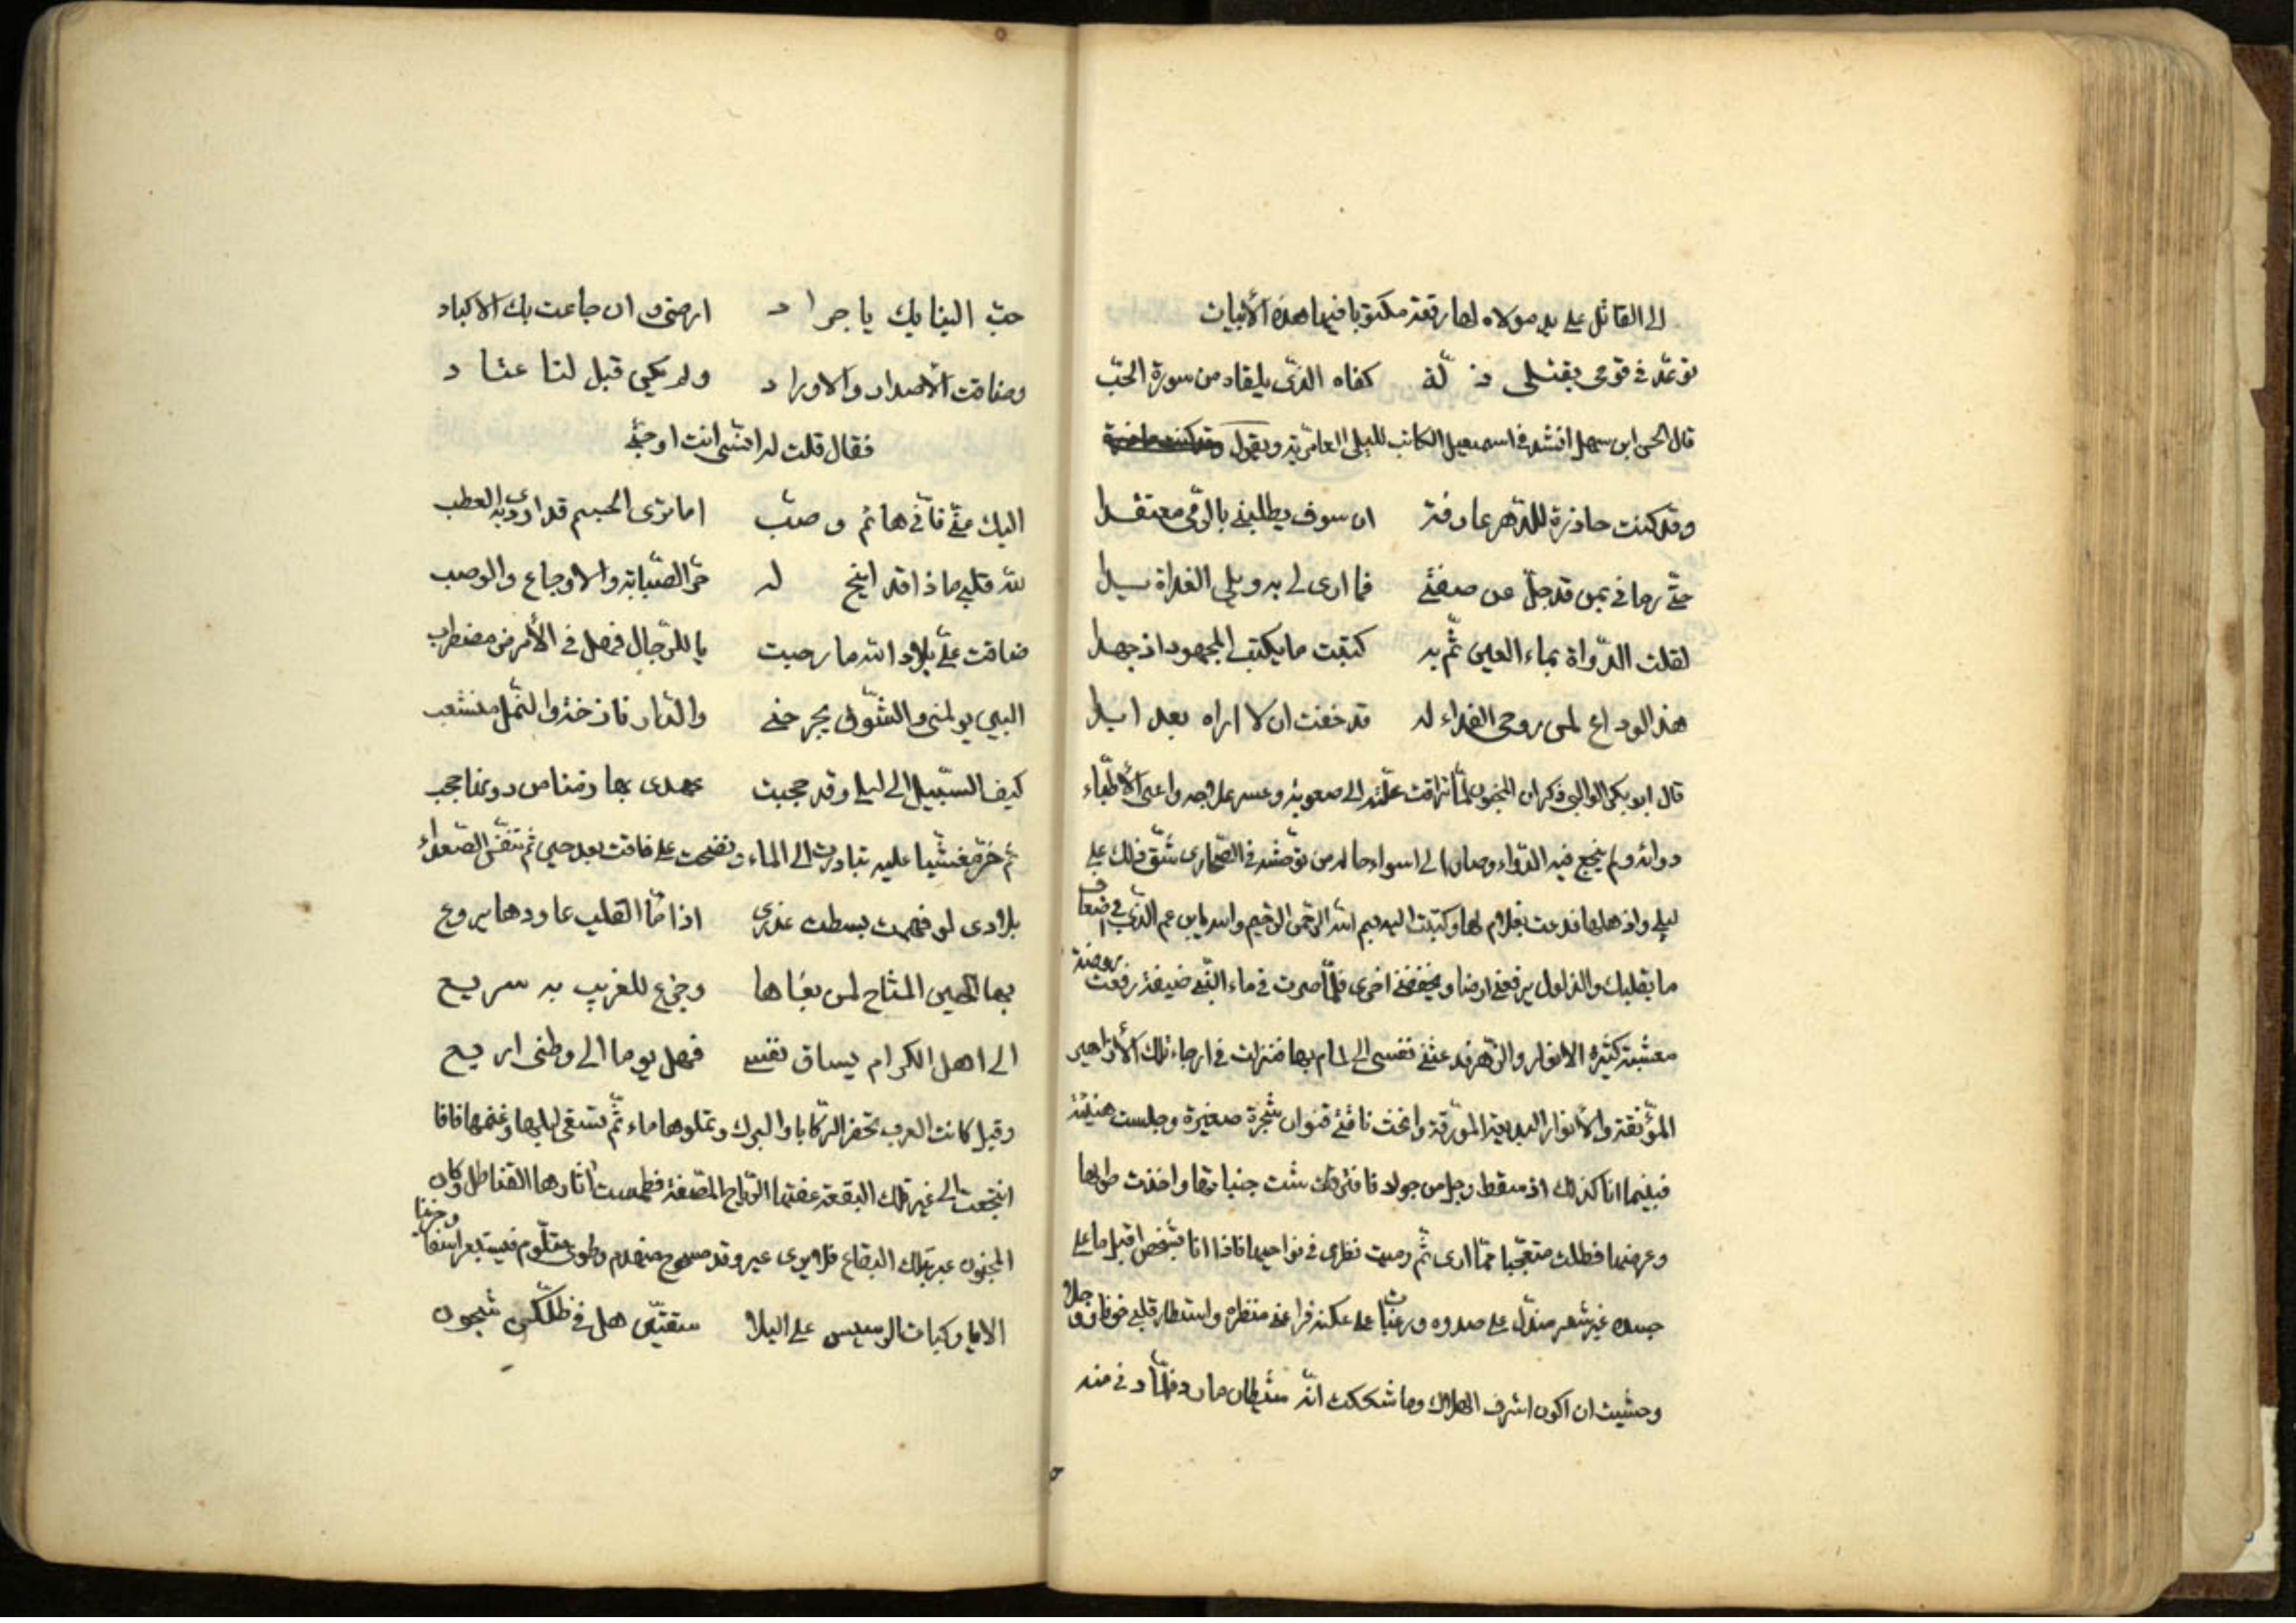 الى القائل على يد مولاه لها رقعة مكتوبا فيها هذه الأبيات
توعد في قومى بقتلى ذ لة كفاه الذى يلقاه من سورة الحب
قال الحسن ابن سهل انشد في اسمعيل الكاتب لليلى العامرية ويقول
وقد كنت حاذرة للدهر عارفة ان سوف يطلبنى بالرقى معتقدا
حتى رمانى بمن قد جل عن صفتى فما ارى لى به ويلى الغداة يدا
لقلت الدواة بماء العين ثم به كتبت ما يكتب المجهود اذ جهدا
هذا الوداع لمن روحى الفداء له قد خفت ان لا اراه بعد ابدا
قال ابو بكر الوالبى ذكر ان المجنون لما تراقت علته الى صعوبة وعسر علاجه واعيى الأطباء
دوائه ولم ينجع فيه الدواء وصار الى اسواء حاله من توحشه في الصحارى شق ذلك على
ليلى واذهلها فدعت بغلام لها وكتبت اليه بسم الله الرحمن الرحيم والله يابن عم الذى في اضعاف
ما بقلبك والذلول يرفعنى ارضا ويخفضنى اخرى فلما صرت في ماء رفعت روضة
معشبة كثيرة الانوار والزهر فدعتنى نفسى الى المام بها فنزلت في ارجاء تلك الأزاهير
المؤنقة والأنوار البديعة المورقة وانخت ناقتى شجرة صغيرة وجلست هنيئة
فبينما انا كذلك اذ سقط رجل من جراد واخذت طولها
وعرضها فظلت متعجبا مما ارى ثم رميت نظرى في نواحيها فاذا انا بشخص اقبل ما على
جسده غير شعر منذل على صدره منظره واستطار قلبى خوفا
وخشيت ان اكون اشرف الهلاك وما شككت انه شيطان مارد فلما دنى منه
حب الينا بك يا جرا د ارضى وان جاعت بك الاكباد
وضاقت الأصدار والاورا د ولم يكن قبل لنا عتا د
فقال قلت له انسى انت او جنى
اليك عنى فانى هائم وصب اما ترى الجسم قد اودى به العطب
لله قلبى ماذا قد اتيح له حر الصبابة والاوجاع والوصب
ضاقت على بلاد الله ما رحبت يا للرجال فهل في الأرض مضطرب
البين يولمنى والشوق يجرحنى والدار نازحة والشمل منشعب
كيف السبيل الى ليلى وقد حجبت عهدى بها زمنا من دونها حجب
ثم خر مغشيا عليه فبادرت الى الماء ونضحت عليه فافاق بعد حين ثم تنفس الصعداء
بلادى لو فهمت بسطت عذرى اذا ما القلب عاودها يروع
بها الحين المتاح لمن بغاها وجزع للغريب به سريع
الى اهل الكرام يساق نفسى فهل يوما الى وطنى اريع
وقيل كانت العرب تحفر الركايا والبرك وتملوها ماء ثم تسقى ابلها وغنمها فاذا
انتجعت الى غير تلك البقعة عفتها الرياح فطمست اثارها القساطل وكان
المجنون عبر بتلك البقاع فلا يرى غير وقد مهدوم وحزنا
الا يا ركيات الرسيس على البلا سقيتن هل في ظلكن شجون